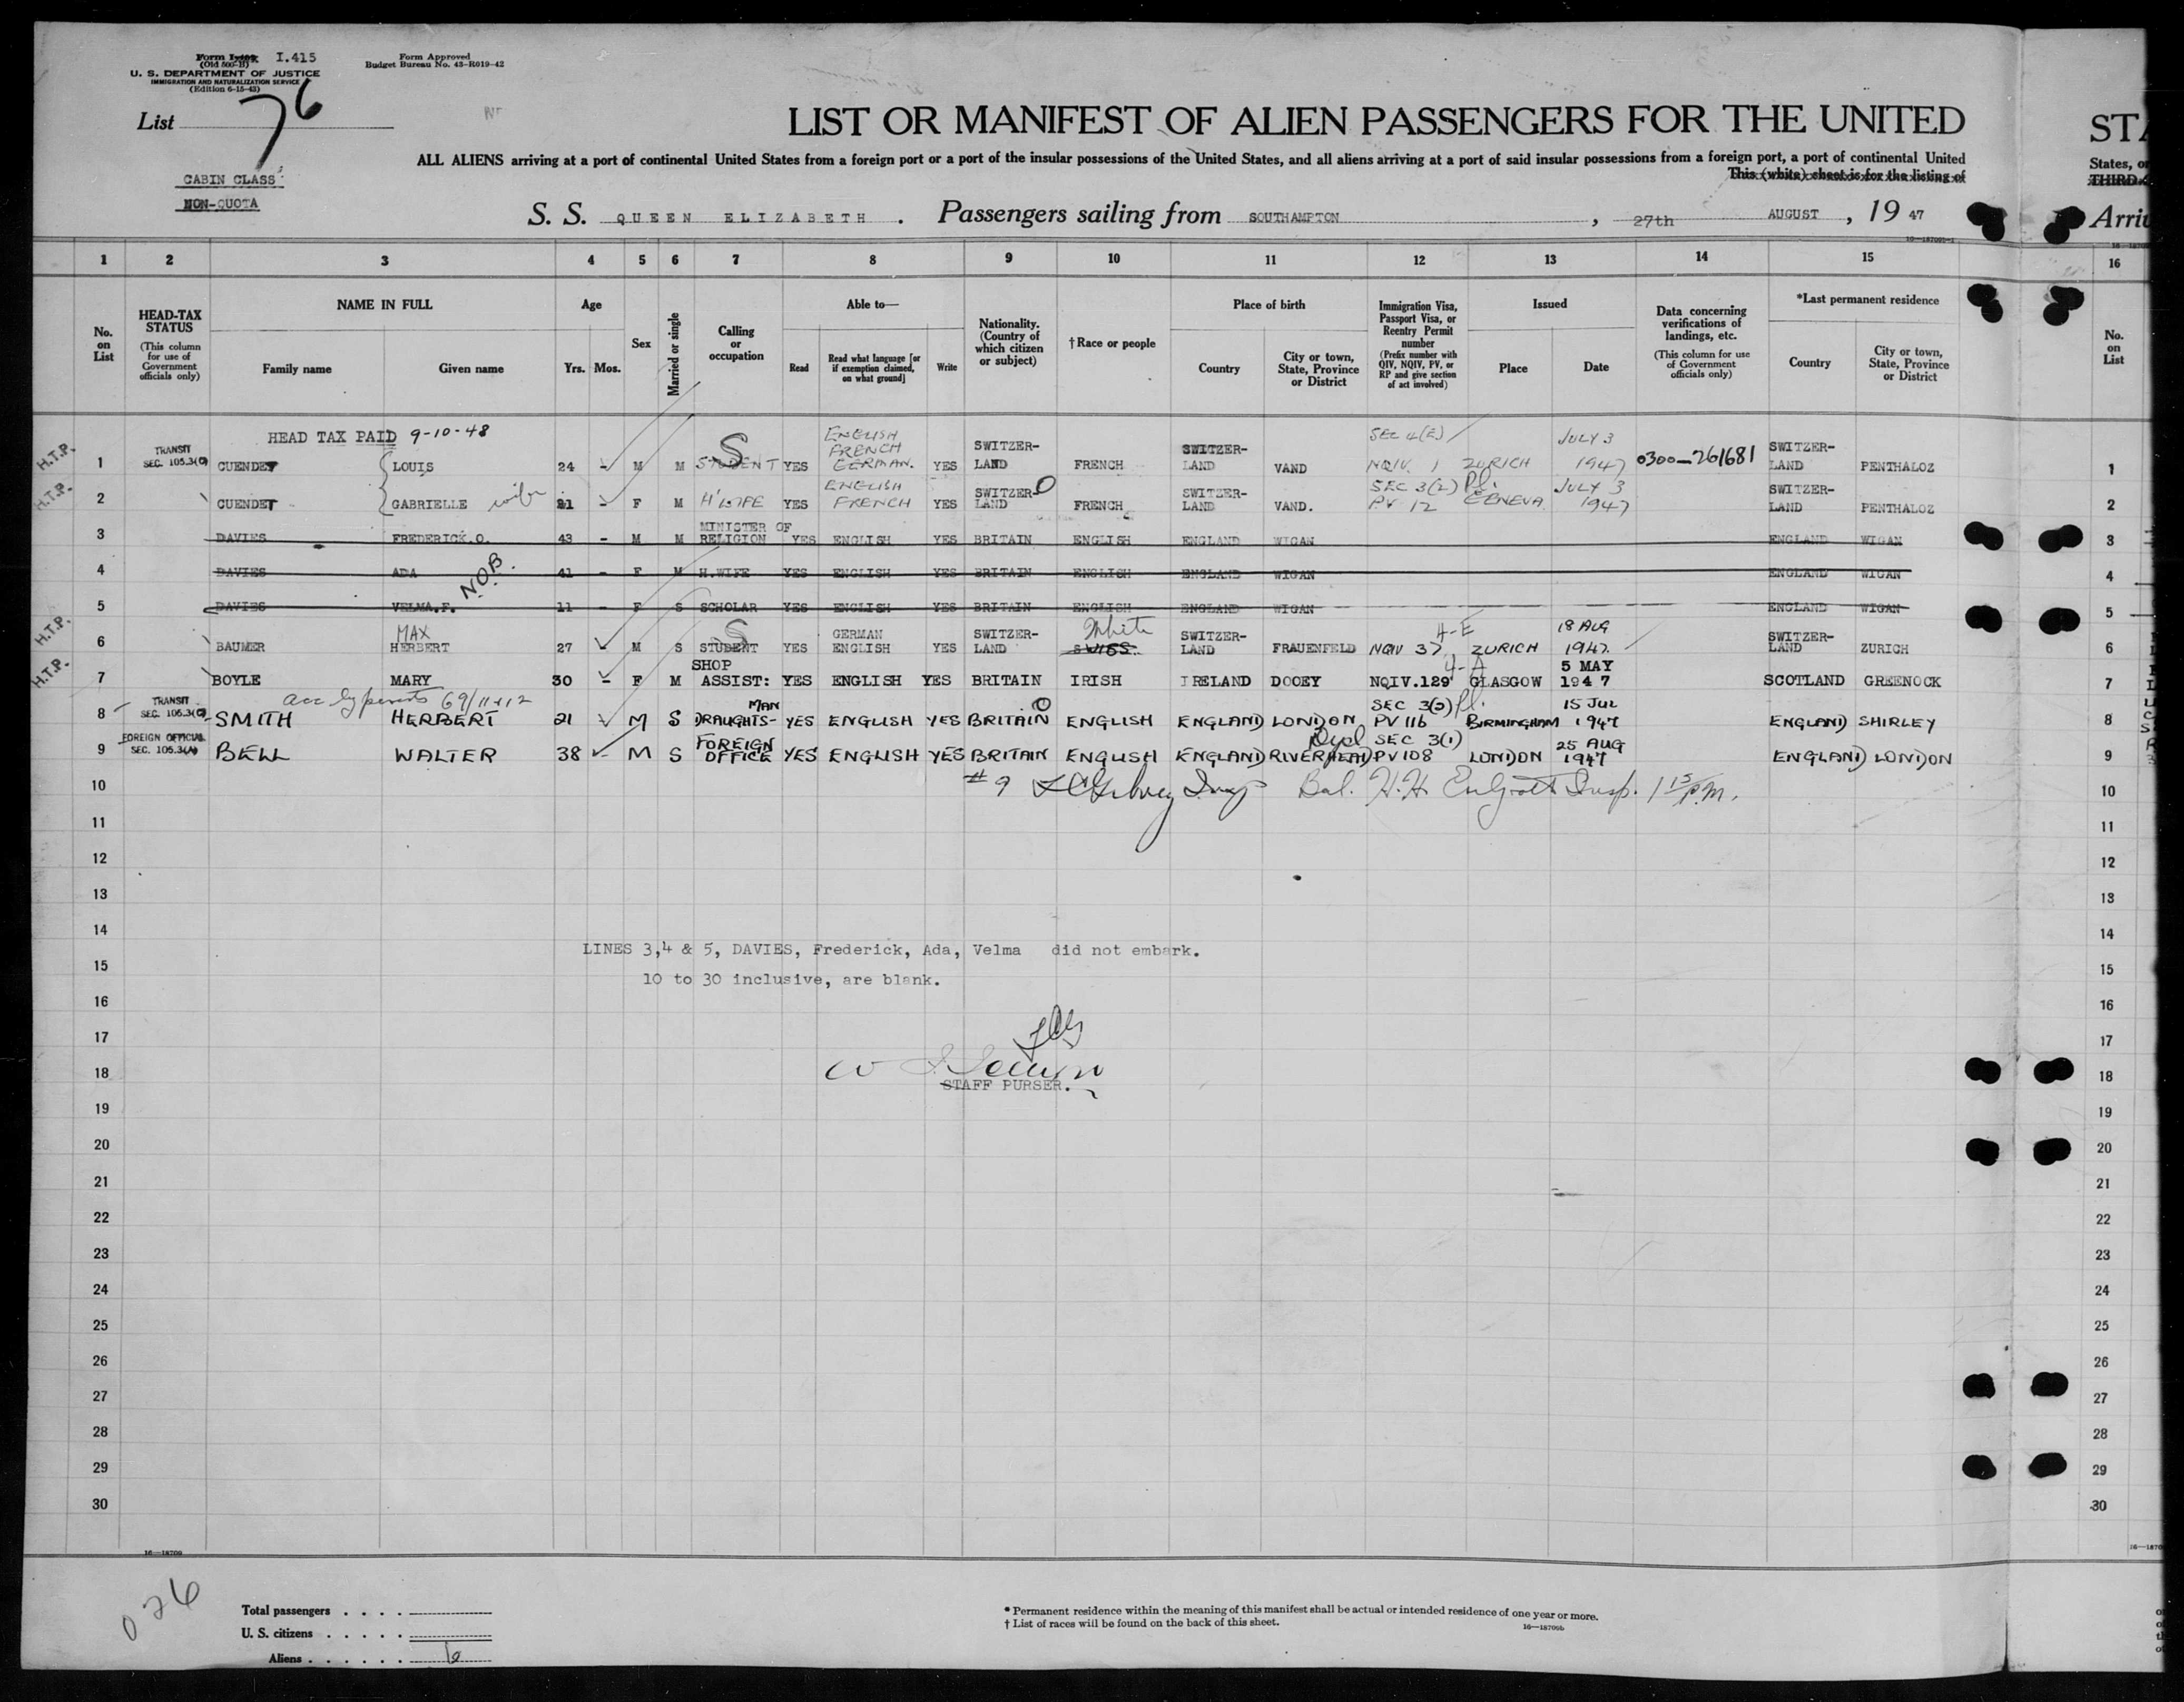 Form I-415
(Old 500-B)
U. S. DEPARTMENT OF JUSTICE
IMMIGRATION AND NATURALIZATION SERVICE
(Edition 6-15-43)
Form Approved
Budget Bureau No. 43-R019-42
List 76
CABIN CLASS
NON-QUOTA
LIST OR MANIFEST OF ALIEN PASSENGERS FOR THE UNITED
ALL ALIENS arriving at a port of continental United States from a foreign port or a port of the insular possessions of the United States, and all aliens arriving at a port of said insular possessions from a foreign port, a port of continental United
This (white) sheet is for the listing of
S. S. QUEEN ELIZABETH . Passengers sailing from SOUTHAMPTON , 27th AUGUST , 19 47
STA
States, o
THIRD
Arri
1 2 3 4 5 6 7 8 9 10 11 12 13 14 15 16
No. on List
HEAD-TAX STATUS
(This column for use of Government officials only)
NAME IN FULL
Family name Given name
Age
Yrs. Mos.
Sex
Married or single
Calling or occupation
Able to—
Read
Read what language [or if exemption claimed, on what ground]
Write
Nationality. (Country of which citizen or subject)
†Race or people
Place of birth
Country
City or town, State, Province or District
Immigration Visa, Passport Visa, or Reentry Permit number
(Prefix number with QIV, NQIV, PV, or RP and give section of act involved)
Issued
Place Date
Data concerning verifications of landings, etc.
(This column for use of Government officials only)
*Last permanent residence
Country
City or town, State, Province or District
No. on List
HEAD TAX PAID 9-10-48
H.T.P. 1 TRANSIT SEC. 105.3(C) CUENDET LOUIS 24 - M M STUDENT S YES ENGLISH FRENCH GERMAN. YES SWITZER-LAND FRENCH SWITZER-LAND VAND SEC 4(E) NQIV 1 ZURICH JULY 3 1947 0300-261681 SWITZER-LAND PENTHALOZ 1
H.T.P. 2 CUENDET GABRIELLE wife 21 - F M H'WIFE YES ENGLISH FRENCH YES SWITZER-LAND FRENCH SWITZER-LAND VAND. SEC 3(2) Pl. PV 12 GENEVA JULY 3 1947 SWITZER-LAND PENTHALOZ 2
3 DAVIES FREDERICK.O. 43 - M M MINISTER OF RELIGION YES ENGLISH YES BRITAIN ENGLISH ENGLAND WIGAN ENGLAND WIGAN 3
4 DAVIES ADA N.O.B. 41 - F M H.WIFE YES ENGLISH YES BRITAIN ENGLISH ENGLAND WIGAN ENGLAND WIGAN 4
5 DAVIES VELMA.F. 11 - F S SCHOLAR YES ENGLISH YES BRITAIN ENGLISH ENGLAND WIGAN ENGLAND WIGAN 5
H.T.P. 6 BAUMER MAX HERBERT 27 M S STUDENT S YES GERMAN ENGLISH YES SWITZER-LAND White SWISS SWITZER-LAND FRAUENFELD 4-E NQIV 37 ZURICH 18 AUG 1947. SWITZER-LAND ZURICH 6
H.T.P. 7 BOYLE MARY 30 - F M SHOP ASSIST: YES ENGLISH YES BRITAIN IRISH IRELAND DOOEY 4-A NQIV.129 GLASGOW 5 MAY 1947 SCOTLAND GREENOCK 7
acc by parents 69/11+12
8 TRANSIT SEC. 105.3(C) SMITH HERBERT 21 M S DRAUGHTS-MAN YES ENGLISH YES BRITAIN ENGLISH ENGLAND LONDON SEC 3(2) Pl. PV 116 BIRMINGHAM 15 JUL 1947 ENGLAND SHIRLEY 8
9 FOREIGN OFFICIAL SEC. 105.3(A) BELL WALTER 38 - M S FOREIGN OFFICE YES ENGLISH YES BRITAIN ENGLISH ENGLAND RIVERHEAD SEC 3(1) PV108 LONDON 25 AUG 1947 ENGLAND LONDON 9
10 #9 Insp Bal. H.H. Insp. 1 15 P.M. 10
11 11
12 12
13 13
14 LINES 3,4 & 5, DAVIES, Frederick, Ada, Velma did not embark. 14
15 10 to 30 inclusive, are blank. 15
16 16
17 17
18 STAFF PURSER. 18
19 19
20 20
21 21
22 22
23 23
24 24
25 25
26 26
27 27
28 28
29 29
30 30
16—18706
026
Total passengers . . . .
U. S. citizens . . . . .
Aliens . . . . . . 6
* Permanent residence within the meaning of this manifest shall be actual or intended residence of one year or more.
† List of races will be found on the back of this sheet.
16—18706b